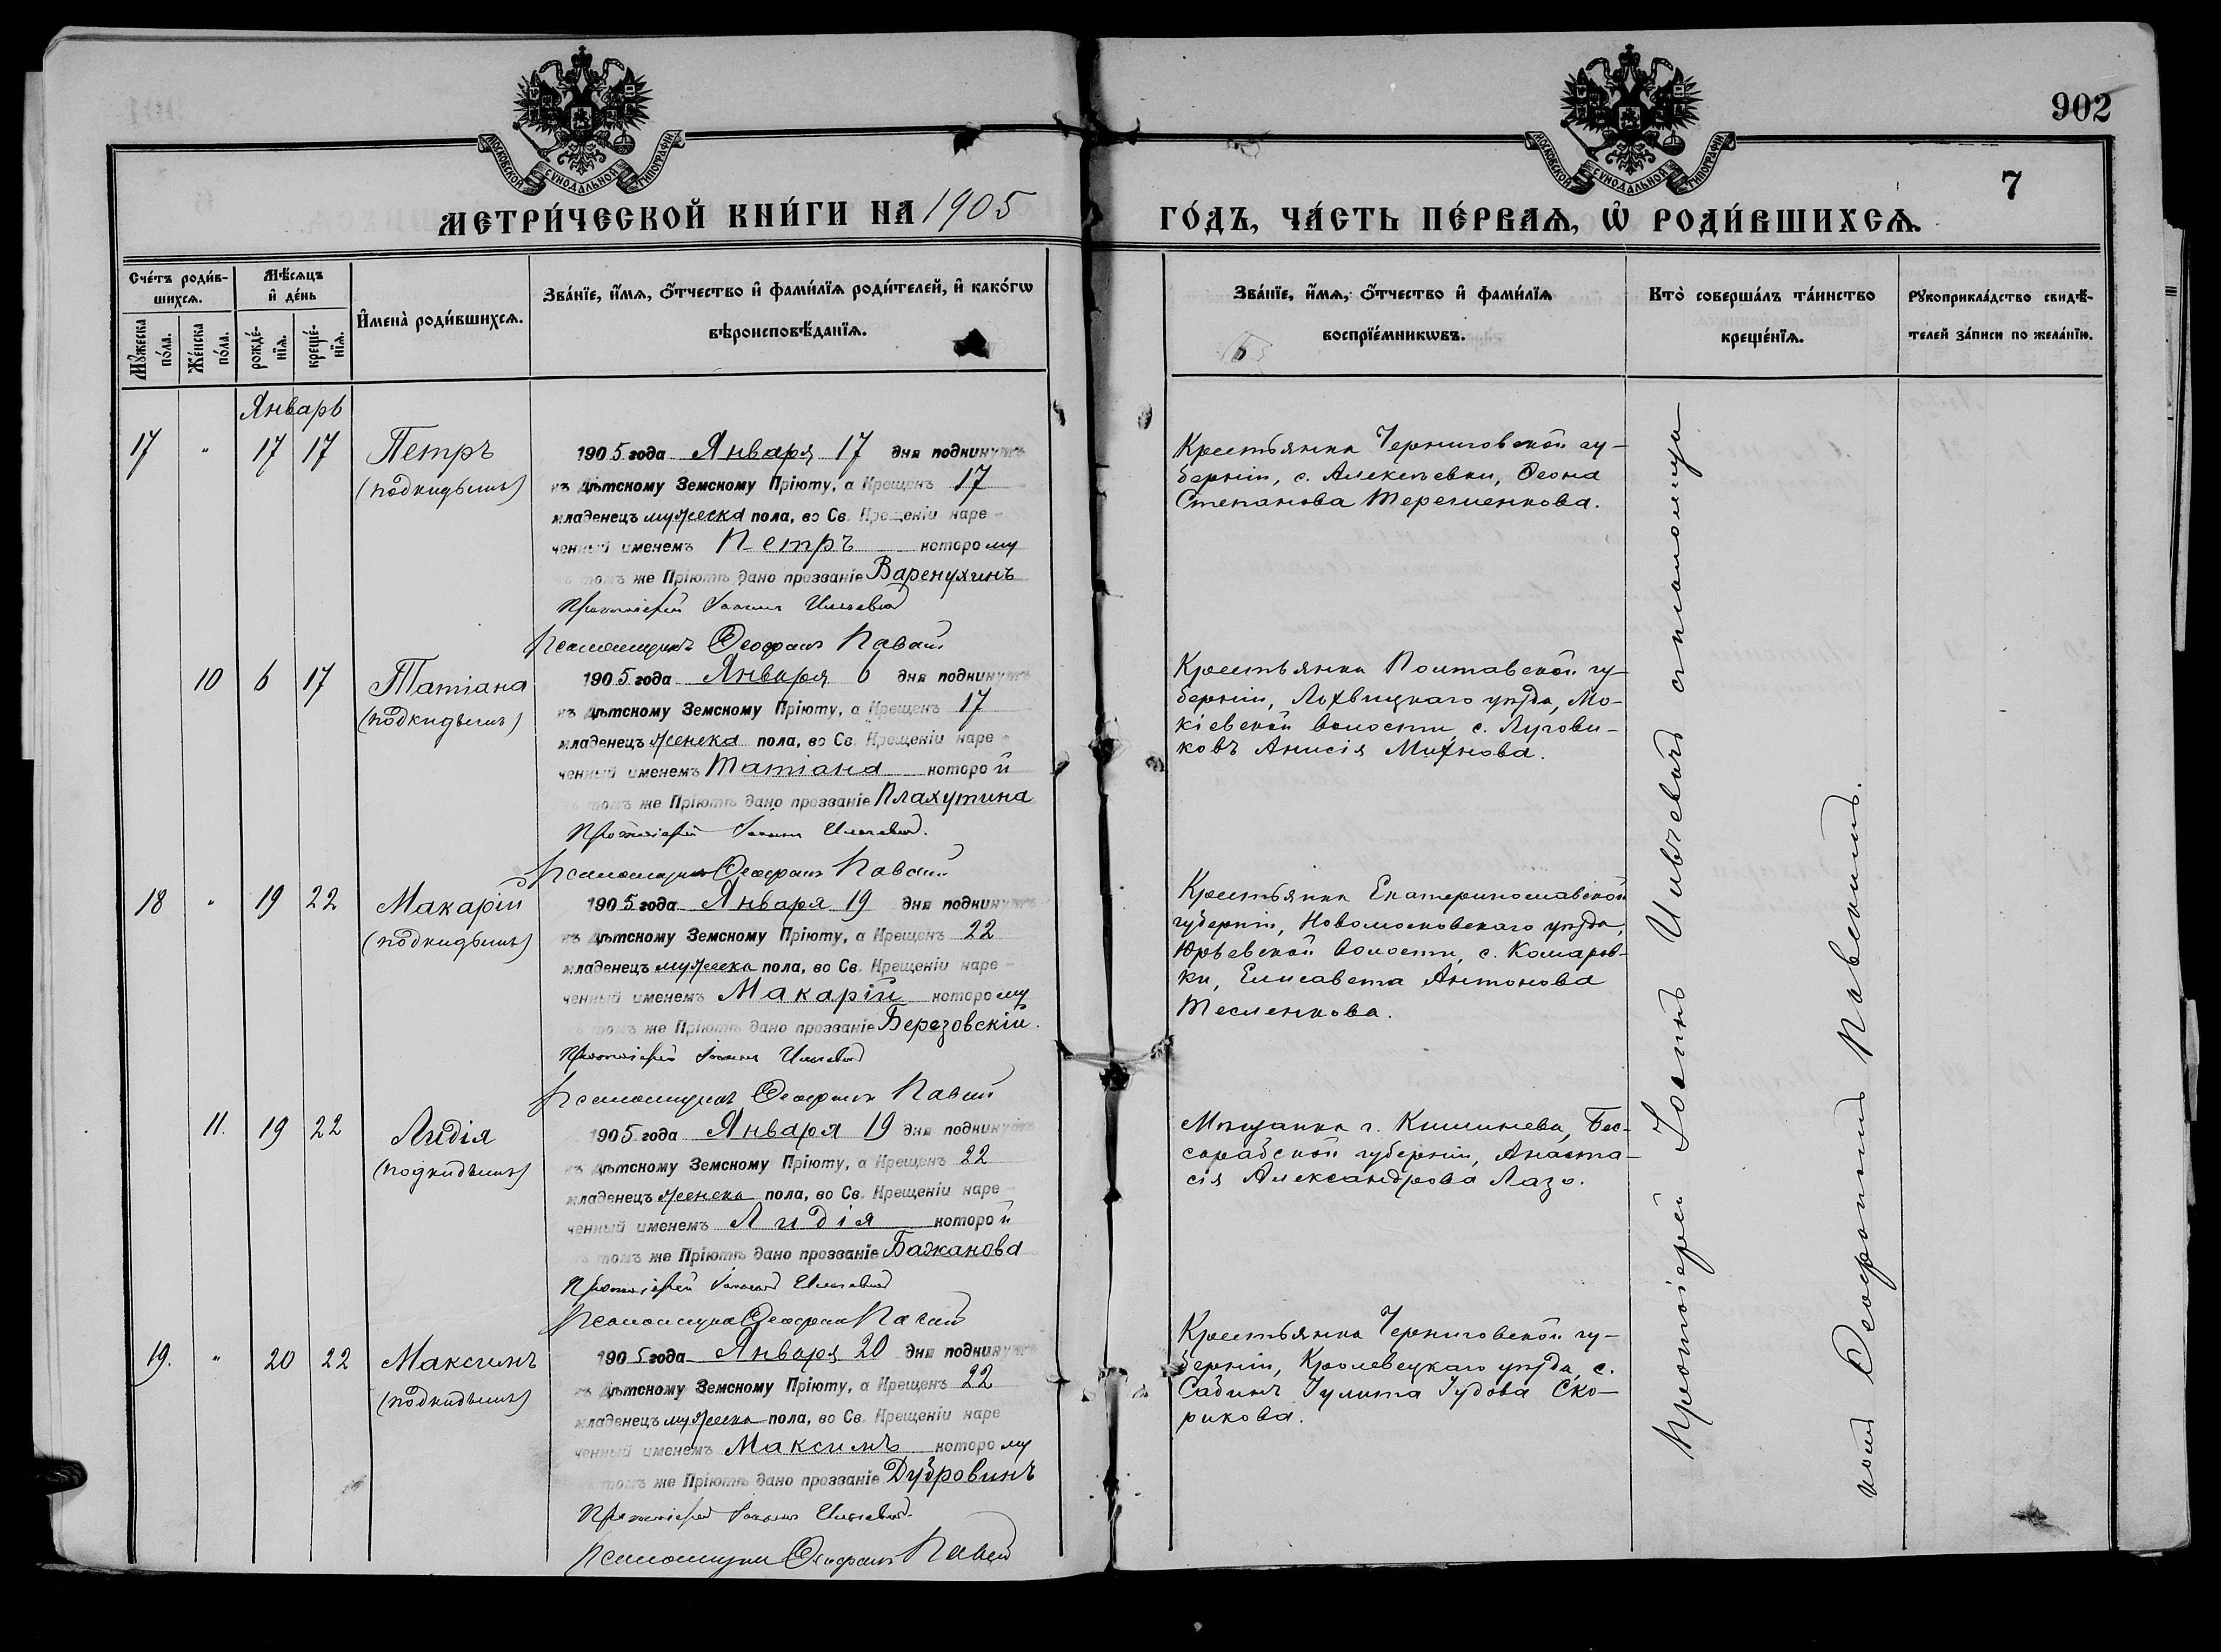 902
МОСКОВСКОЙ СѴНОДАЛЬНОЙ ТИПОГРАФІИ
МОСКОВСКОЙ СѴНОДАЛЬНОЙ ТИПОГРАФІИ
7
МЕТРИ́ЧЕСКОЙ КНИ́ГИ НА 1905
ГО́ДЪ, ЧА́СТЬ ПЕ́РВАѦ, Ѽ РОДИ́ВШИХСѦ.
Сче́тъ роди́в-
шихсѧ.
Мꙋ́жеска
по́ла.
Же́нска
по́ла.
Мѣ́сѧцъ
и҆ де́нь
рожде́-
нїѧ.
креще́-
нїѧ.
И҆мена̀ роди́вшихсѧ.
Зва́нїе, и҆́мѧ, ѻ҆́тчество и҆ фами́лїѧ роди́телей, и҆ како́гѡ
вѣроисповѣ́данїѧ.
Зва́нїе, и҆́мѧ, ѻ҆́тчество и҆ фами́лїѧ
воспрїе́мникѡвъ.
Кто̀ соверша́лъ та́инство
креще́нїѧ.
Рꙋкоприкла́дство свидѣ́-
телей за́писи по жела́нїю.
Январь
17 " 17 17 Петръ
(подкидышъ)
1905 года Января 17 дня подкинутъ
къ Дѣтскому Земскому Пріюту, а Крещенъ 17
младенецъ мужеска пола, во Св. Крещеніи наре-
ченный именемъ Петръ которому
въ томъ же Пріютѣ дано прозваніе Варенухинъ
Протоіерей Іоаннъ Ильчевичъ
Псаломщикъ Ѳеофанъ
Крестьянка Черниговской гу-
берніи, с. Алексѣевки, Ѳеона
Степанова Терешенкова.
10 6 17 Татіана
(подкидышъ)
1905 года Января 6 дня подкинутъ
къ Дѣтскому Земскому Пріюту, а Крещенъ 17
младенецъ женска пола, во Св. Крещеніи наре-
ченный именемъ Татіана которой
въ томъ же Пріютѣ дано прозваніе Плахутина
Протоіерей Іоаннъ Ильчевичъ.
Псаломщикъ Ѳеофанъ
Крестьянка Полтавской гу-
берніи, Лохвицкаго уѣзда, Мо-
кіевской волости, с. Лугови-
ковъ Анисія Михнова.
18 " 19 22 Макарій
(подкидышъ)
1905 года Января 19 дня подкинутъ
къ Дѣтскому Земскому Пріюту, а Крещенъ 22
младенецъ мужеска пола, во Св. Крещеніи наре-
ченный именемъ Макарій которому
въ томъ же Пріютѣ дано прозваніе Березовскій.
Протоіерей Іоаннъ Ильчевичъ
Псаломщикъ Ѳеофанъ
Крестьянка Екатеринославской
губерніи, Новомосковскаго уѣзда,
Юрьевской волости, с. Комаров-
ки, Елисавета Антонова
Тесленкова.
11. 19 22 Лидія
(подкидышъ)
1905 года Января 19 дня подкинутъ
къ Дѣтскому Земскому Пріюту, а Крещенъ 22
младенецъ женска пола, во Св. Крещеніи наре-
ченный именемъ Лидія которой
въ томъ же Пріютѣ дано прозваніе Бажанова
Протоіерей Іоаннъ Ильчевичъ
Псаломщикъ Ѳеофанъ
Мѣщанка г. Кишинева, Бес-
сарабской губерніи, Анаста-
сія Александрова Лазо.
19. " 20 22 Максимъ
(подкидышъ)
1905 года Января 20 дня подкинутъ
къ Дѣтскому Земскому Пріюту, а Крещенъ 22
младенецъ мужеска пола, во Св. Крещеніи наре
ченный именемъ Максимъ которому
въ томъ же Пріютѣ дано прозваніе Дубровинъ
Протоіерей Іоаннъ Ильчевичъ.
Псаломщикъ Ѳеофанъ
Крестьянка Черниговской гу-
берніи, Кролевецкаго уѣзда, с.
Сабинъ Іулита Іудова Ско-
рикова.
Протоіерей Іоаннъ Ильчевичъ съ псаломщи-
комъ Ѳеофаномъ